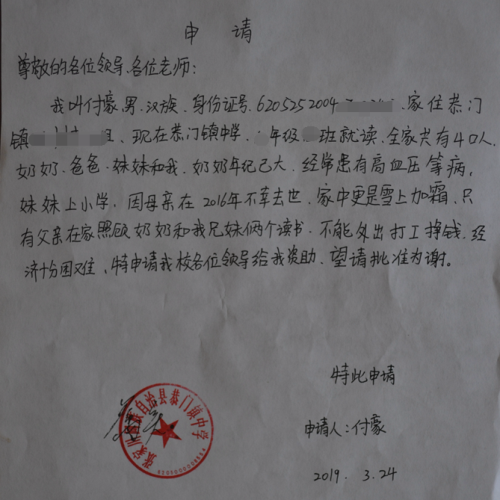 申 请
尊敬的各位领导、各位老师:
我叫付豪、男、汉族、身份证号、6205252004 家住恭门
镇 组、现在恭门镇中学、 年级 班就读、全家共有4口人、
奶奶、爸爸、妹妹和我、奶奶年纪已大、经常患有高血压等病,
妹妹上小学、因母亲在2016年不幸去世、家中更是雪上加霜、只
有父亲在家照顾奶奶和我兄妹俩个读书、不能外出打工挣钱、经
济十分困难、特申请我校各位领导给我资助、望请批准为谢。
特此申请
申请人:付豪
2019. 3.24
张家川回族自治县恭门镇中学